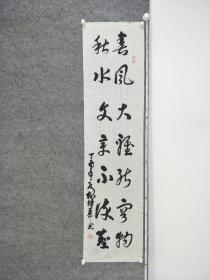 春风大雅能容物
秋水文章不染尘
丁酉年夏